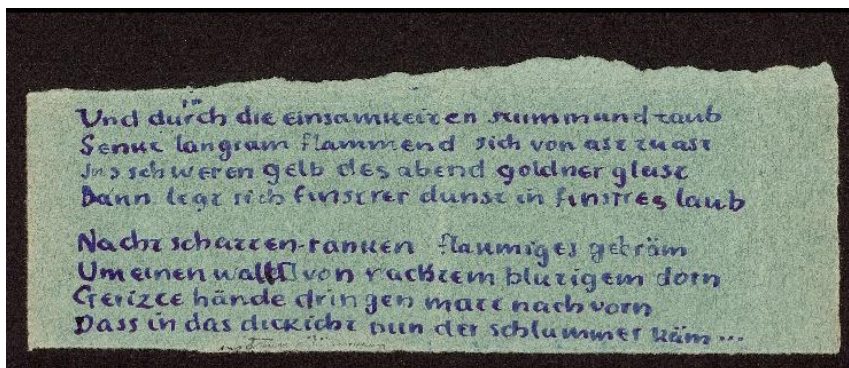 Und durch die einsamkeiten stumm und taub
Senkt langsam flammend sich von ast zu ast
Ins schweren gelb des abend goldner glast
Dann legt sich finstrer dunst in finstres laub
Nacht schatten-ranken flaumiges gebräm
Um einen wall von nacktem blutigem dorn
Gerizte hände dringen matt nach vorn
Dass in das dickicht nun der schlummer käm...